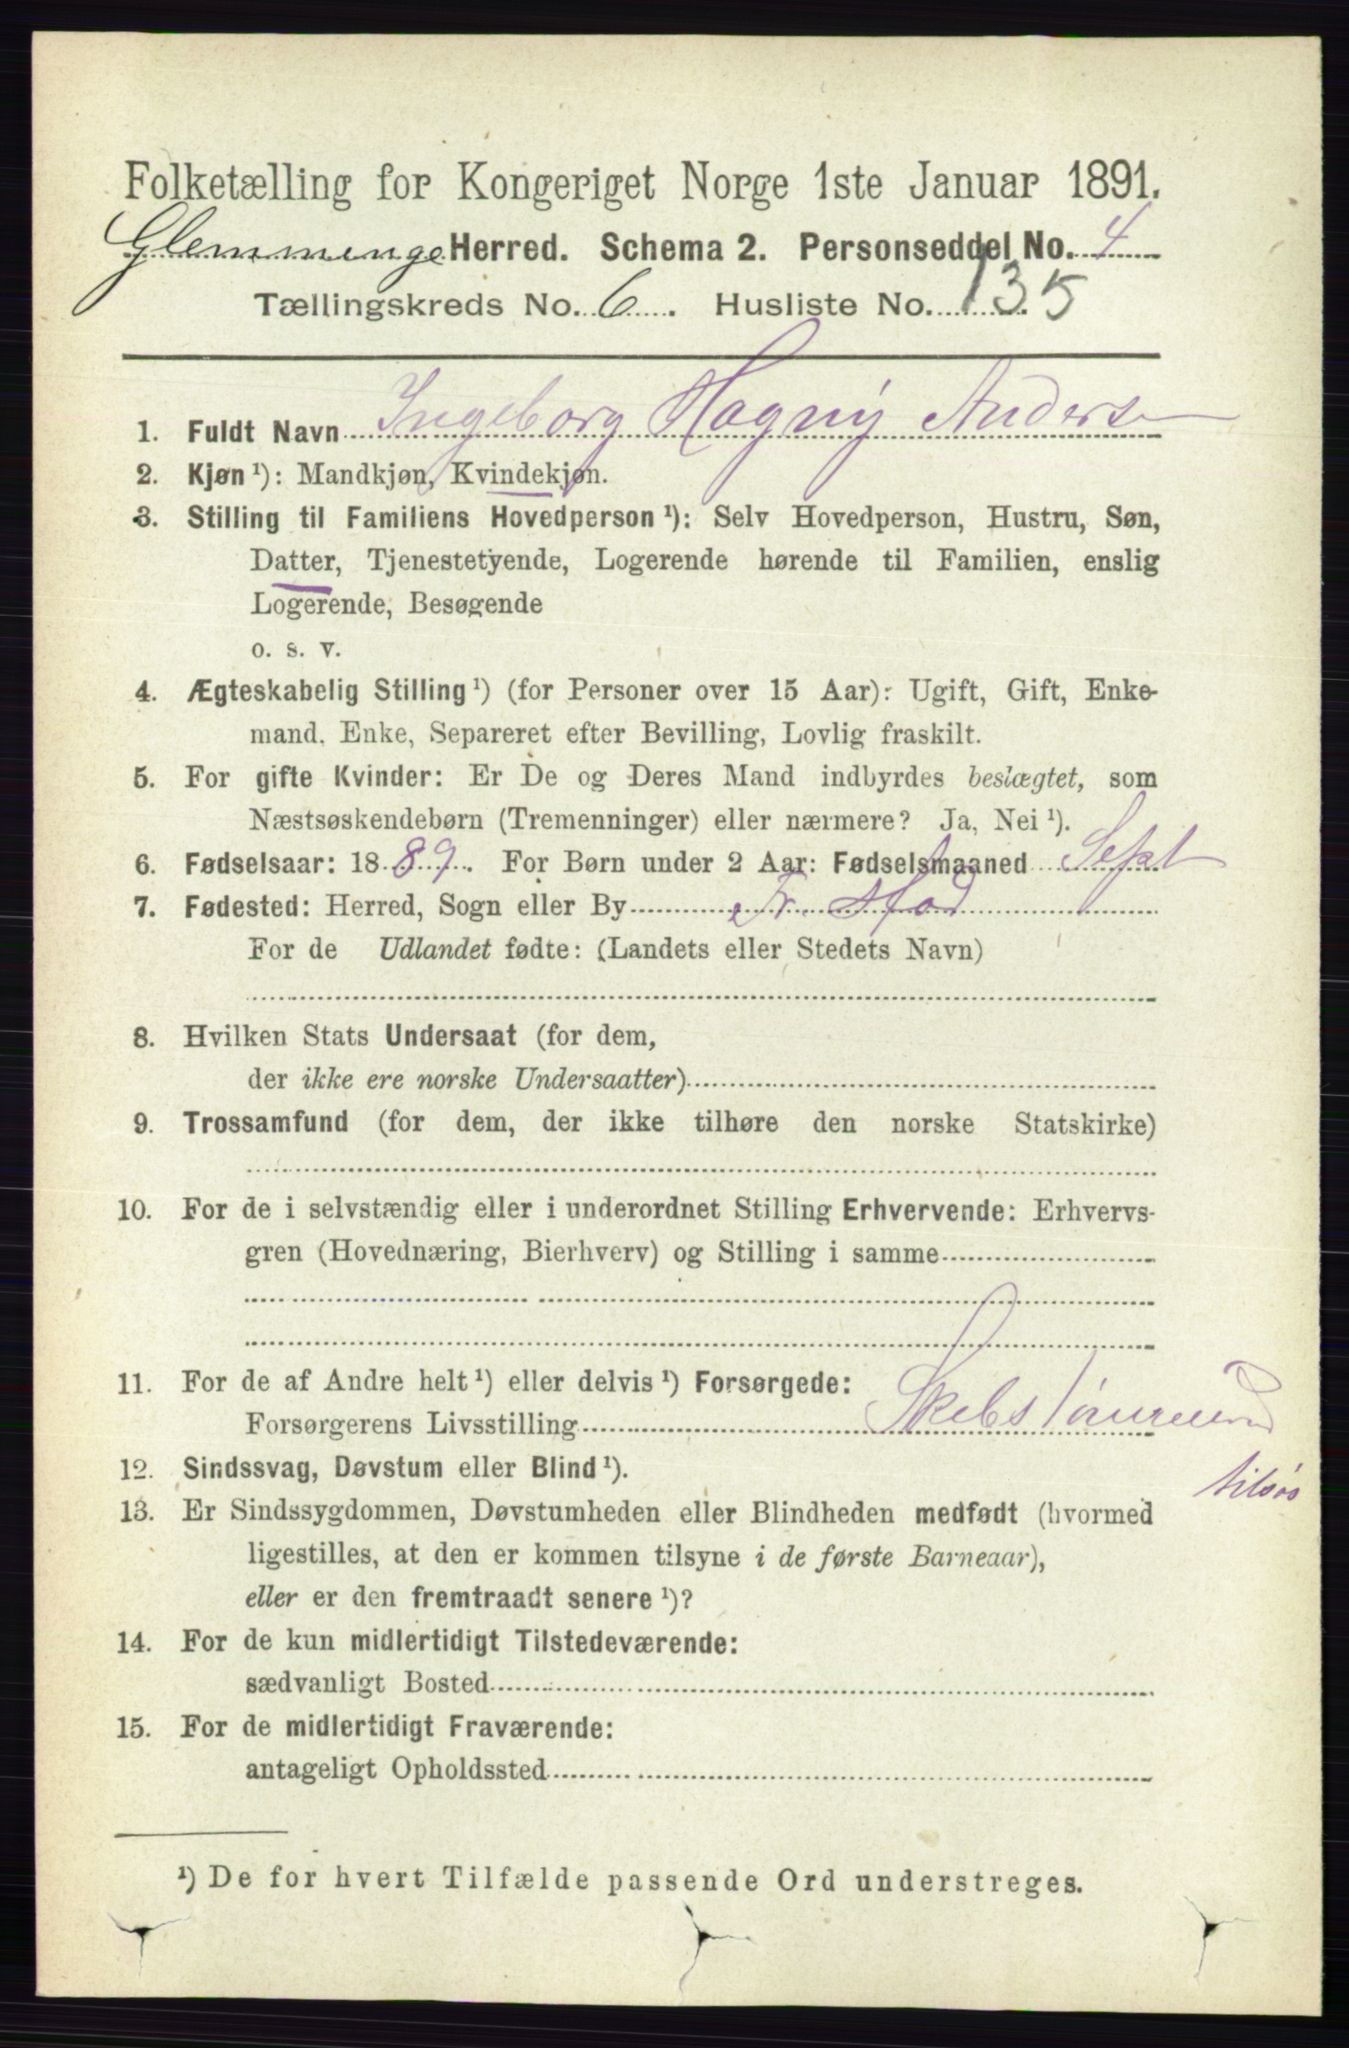 Folketælling for Kongeriget Norge 1ste Januar 1891.
Glemminge Herred. Schema 2. Personseddel No. 4
Tællingskreds No. 6. Husliste No. 135
1. Fuldt Navn Ingeborg Hagny Anders
2. Kjøn ¹): Mandkjøn, Kvindekjøn.
3. Stilling til Familiens Hovedperson ¹): Selv Hovedperson, Hustru, Søn,
Datter, Tjenestetyende, Logerende hørende til Familien, enslig
Logerende, Besøgende
o. s. v.
4. Ægteskabelig Stilling ¹) (for Personer over 15 Aar): Ugift, Gift, Enke-
mand, Enke, Separeret efter Bevilling, Lovlig fraskilt.
5. For gifte Kvinder: Er De og Deres Mand indbyrdes beslægtet, som
Næstsøskendebørn (Tremenninger) eller nærmere? Ja, Nei ¹).
6. Fødselsaar: 1889. For Børn under 2 Aar: Fødselsmaaned Sept
7. Fødested: Herred, Sogn eller By Fr. stad
For de Udlandet fødte: (Landets eller Stedets Navn)
8. Hvilken Stats Undersaat (for dem,
der ikke ere norske Undersaatter)
9. Trossamfund (for dem, der ikke tilhøre den norske Statskirke)
10. For de i selvstændig eller i underordnet Stilling Erhvervende: Erhvervs-
gren (Hovednæring, Bierhverv) og Stilling i samme
11. For de af Andre helt ¹) eller delvis ¹) Forsørgede:
Forsørgerens Livsstilling Skebstømmerm
tilsøs
12. Sindssvag, Døvstum eller Blind ¹).
13. Er Sindssygdommen, Døvstumheden eller Blindheden medfødt (hvormed
ligestilles, at den er kommen tilsyne i de første Barneaar),
eller er den fremtraadt senere ¹)?
14. For de kun midlertidigt Tilstedeværende:
sædvanligt Bosted
15. For de midlertidigt Fraværende:
antageligt Opholdssted
¹) De for hvert Tilfælde passende Ord understreges.